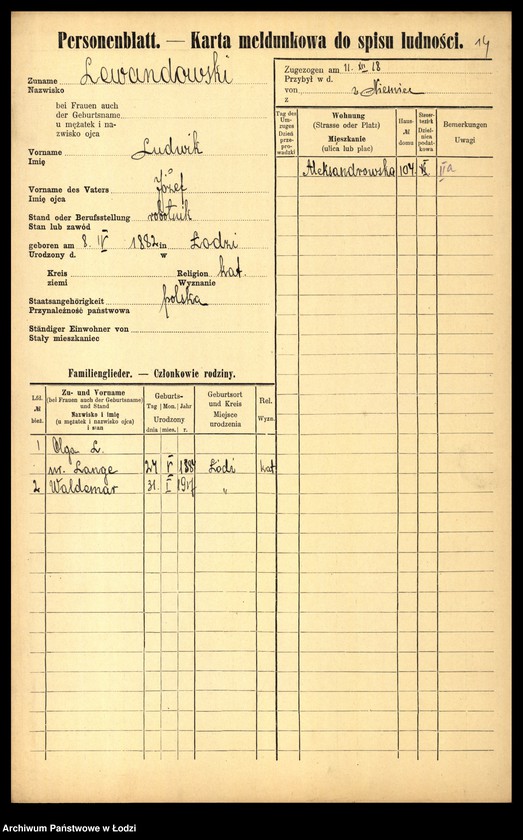 Personenblatt. — Karta meldunkowa do spisu ludności. 14
Zuname Lewandowski
Nazwisko
bei Frauen auch
der Geburtsname
u mężatek i na-
zwisko ojca
Vorname Ludwik
Imię
Vorname des Vaters Józef
Imię ojca
Stand oder Berufsstellung robotnik
Stan lub zawód
geboren am 8. IV 1882 in Łodzi
Urodzony d. w
Kreis Religion kat.
ziemi Wyznanie
Staatsangehörigkeit polska
Przynależność państwowa
Ständiger Einwohner von
Stały mieszkaniec
Zugezogen am 11. XII 18
Przybył w d.
von z Niemiec
z
Tag des Um-zuges Dzień prze-prowadzki
Wohnung
(Strasse oder Platz)
Mieszkanie
(ulica lub plac)
Haus-
№
domu
Steuer-bezirk Dziel-nica podat-kowa
Bemerkungen
Uwagi
Aleksandrowska 104 VI IIa
Familienglieder. — Członkowie rodziny.
Lfd.
№
bież.
Zu- und Vorname
(bei Frauen auch der Geburtsname)
und Stand
Nazwisko i imię
(u mężatek i nazwisko ojca)
i stan
Geburts-
Tag Mon. Jahr
Urodzony
dnia mies. r.
Geburtsort
und Kreis
Miejsce
urodzenia
Rel.
Wyzn.
1 Olga L.
ur. Lange 27 V 1884 Łódź kat
2 Waldemar 31. I 1917 „
Archiwum Państwowe w Łodzi